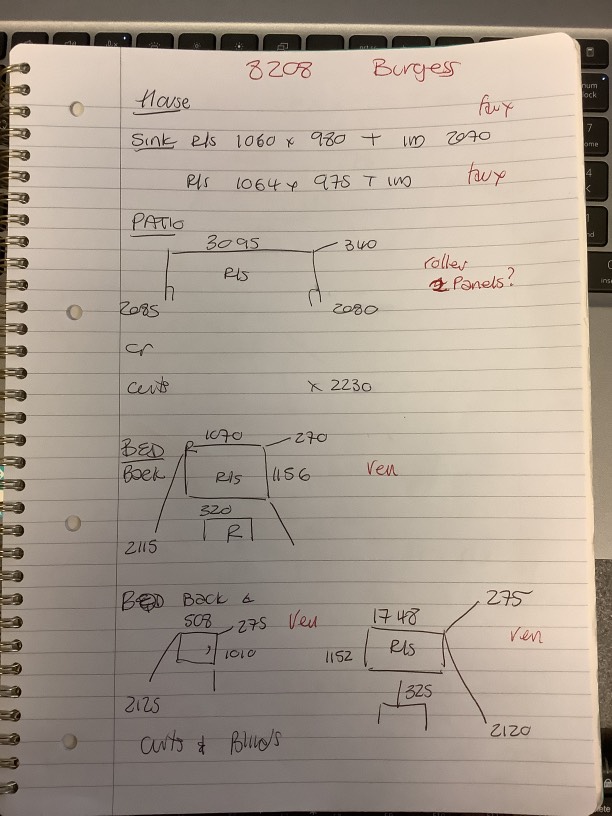 8208 Burgess
House
faux
Sink R/s 1060 x 980 T IM 2070
R/s 1064 x 975 T IM faux
PATIO
3095 340
R/s
roller
2 Panels?
2085 2080
or
curts x 2230
1070 270
BED
Back R/s 1156 Ven
320
R
2115
BED Back 2
508 275 Ven
1010
2125
1748 275
1152 R/s Ven
325
2120
curts & Blinds